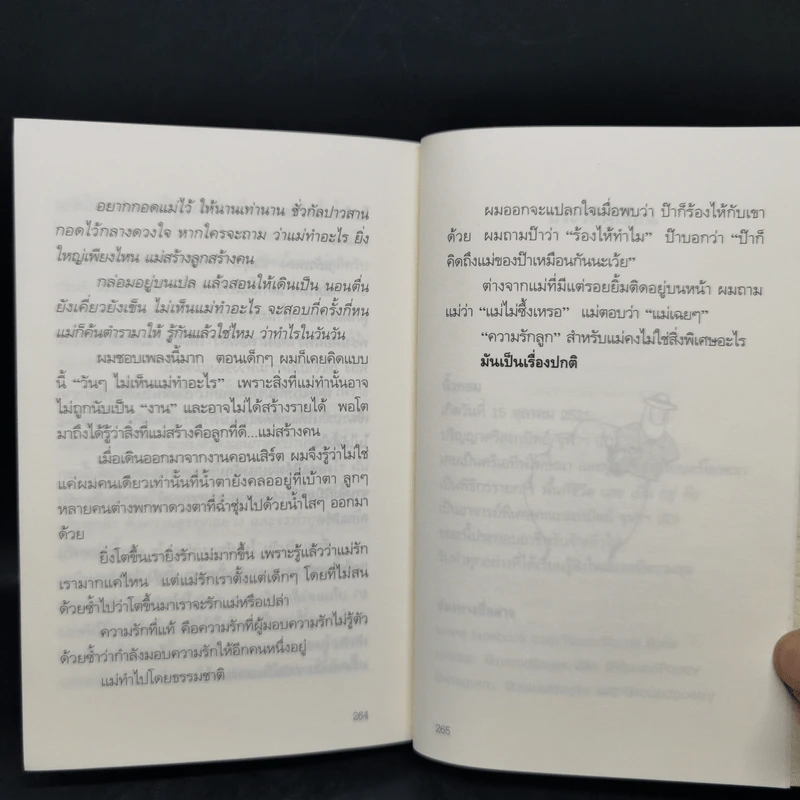 อยากกอดแม่ไว้ ให้นานเท่านาน ชั่วกัลปาวสาน
กอดไว้กลางดวงใจ หากใครจะถาม ว่าแม่ทำอะไร ยิ่ง
ใหญ่เพียงไหน แม่สร้างลูกสร้างคน
กล่อมอยู่บนเปล แล้วสอนให้เดินเป็น นอนตื่น
ยังเคี่ยวยังเข็น ไม่เห็นแม่ทำอะไร จะสอบกี่ครั้งกี่หน
แม่ก็ค้นตำรามาให้ รู้กันแล้วใช่ไหม ว่าทำไรในวันวัน
ผมชอบเพลงนี้มาก ตอนเด็กๆ ผมก็เคยคิดแบบ
นี้ “วันๆ ไม่เห็นแม่ทำอะไร” เพราะสิ่งที่แม่ทำนั้นอาจ
ไม่ถูกนับเป็น “งาน” และอาจไม่ได้สร้างรายได้ พอโต
มาถึงได้รู้ว่าสิ่งที่แม่สร้างคือลูกที่ดี...แม่สร้างคน
เมื่อเดินออกมาจากงานคอนเสิร์ต ผมจึงรู้ว่าไม่ใช่
แค่ผมคนเดียวเท่านั้นที่น้ำตายังคลออยู่ที่เบ้าตา ลูกๆ
หลายคนต่างพกพาดวงตาที่ฉ่ำชุ่มไปด้วยน้ำใสๆ ออกมา
ด้วย
ยิ่งโตขึ้นเรายิ่งรักแม่มากขึ้น เพราะรู้แล้วว่าแม่รัก
เรามากแค่ไหน แต่แม่รักเราตั้งแต่เด็กๆ โดยที่ไม่สน
ด้วยซ้ำไปว่าโตขึ้นมาเราจะรักแม่หรือเปล่า
ความรักที่แท้ คือความรักที่ผู้มอบความรักไม่รู้ตัว
ด้วยซ้ำว่ากำลังมอบความรักให้อีกคนหนึ่งอยู่
แม่ทำไปโดยธรรมชาติ
264
ผมออกจะแปลกใจเมื่อพบว่า ป๊าก็ร้องไห้กับเขา
ด้วย ผมถามป๊าว่า “ร้องไห้ทำไม” ป๊าบอกว่า “ป๊าก็
คิดถึงแม่ของป๊าเหมือนกันนะเว้ย”
ต่างจากแม่ที่มีแต่รอยยิ้มติดอยู่บนหน้า ผมถาม
แม่ว่า “แม่ไม่ซึ้งเหรอ” แม่ตอบว่า “แม่เฉยๆ”
“ความรักลูก” สำหรับแม่คงไม่ใช่สิ่งพิเศษอะไร
มันเป็นเรื่องปกติ
265